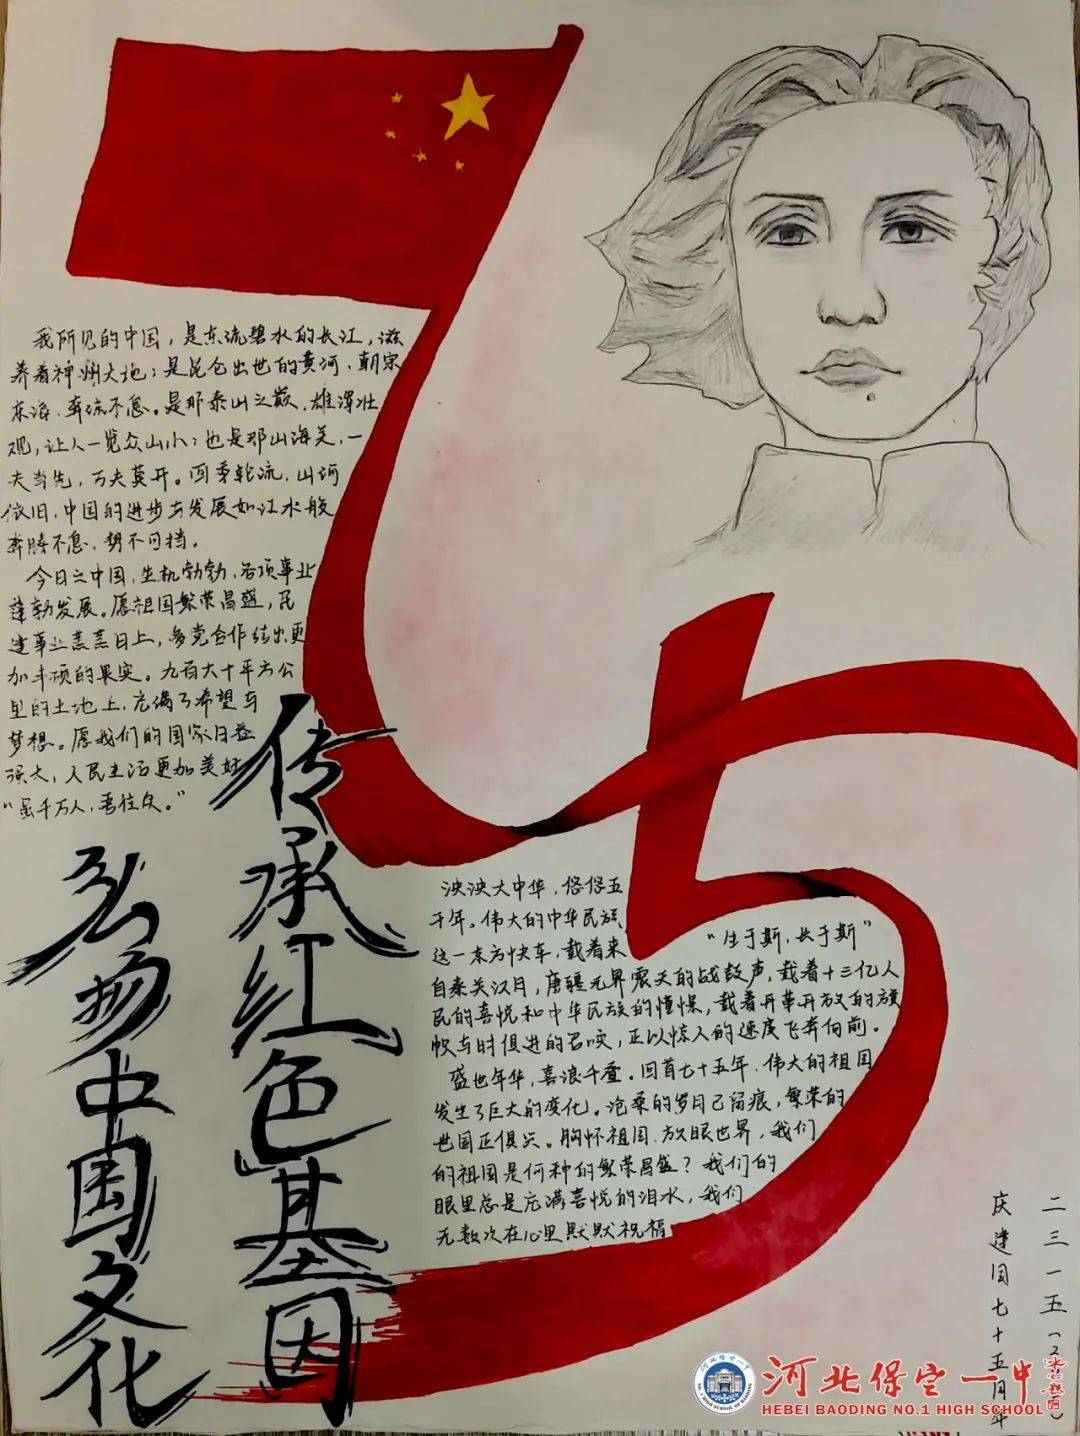 我所见的中国，是东流碧水的长江，滋
养着神州大地；是昆仑出世的黄河，朝宗
东海，奔流不息。是那泰山之巅，雄浑壮
观，让人一览众山小；也是那山海关，一
夫当先，万夫莫开。四季轮流，山河
依旧，中国的进步与发展如江水般
奔腾不息，势不可挡。
今日之中国，生机勃勃，各项事业
蓬勃发展。愿祖国繁荣昌盛，民
建事业蒸蒸日上，多党合作结出更
加丰硕的果实。九百六十平方公
里的土地上，充满了希望与
梦想。愿我们的国家日益
强大，人民生活更加美好
“虽千万人，吾往矣。”
传承红色基因
弘扬中国文化
泱泱大中华，悠悠五
千年。伟大的中华民族
这一东方快车，载着来
“生于斯，长于斯”
自秦关汉月，唐疆元界震天的战鼓声，载着十三亿人
民的喜悦和中华民族的憧憬，载着开革开放的旗
帜与时俱进的召唤，正以惊人的速度飞奔向前。
盛世年华，喜浪千叠。回首七十五年，伟大的祖国
发生了巨大的变化。沧桑的岁月已留痕，繁荣的
世国正俱兴。胸怀祖国，放眼世界，我们
的祖国是何种的繁荣昌盛？我们的
眼里总是充满喜悦的泪水，我们
无数次在心里默默祝福
二三一五
庆建国七十五周年
河北保定一中
HEBEI BAODING NO.1 HIGH SCHOOL